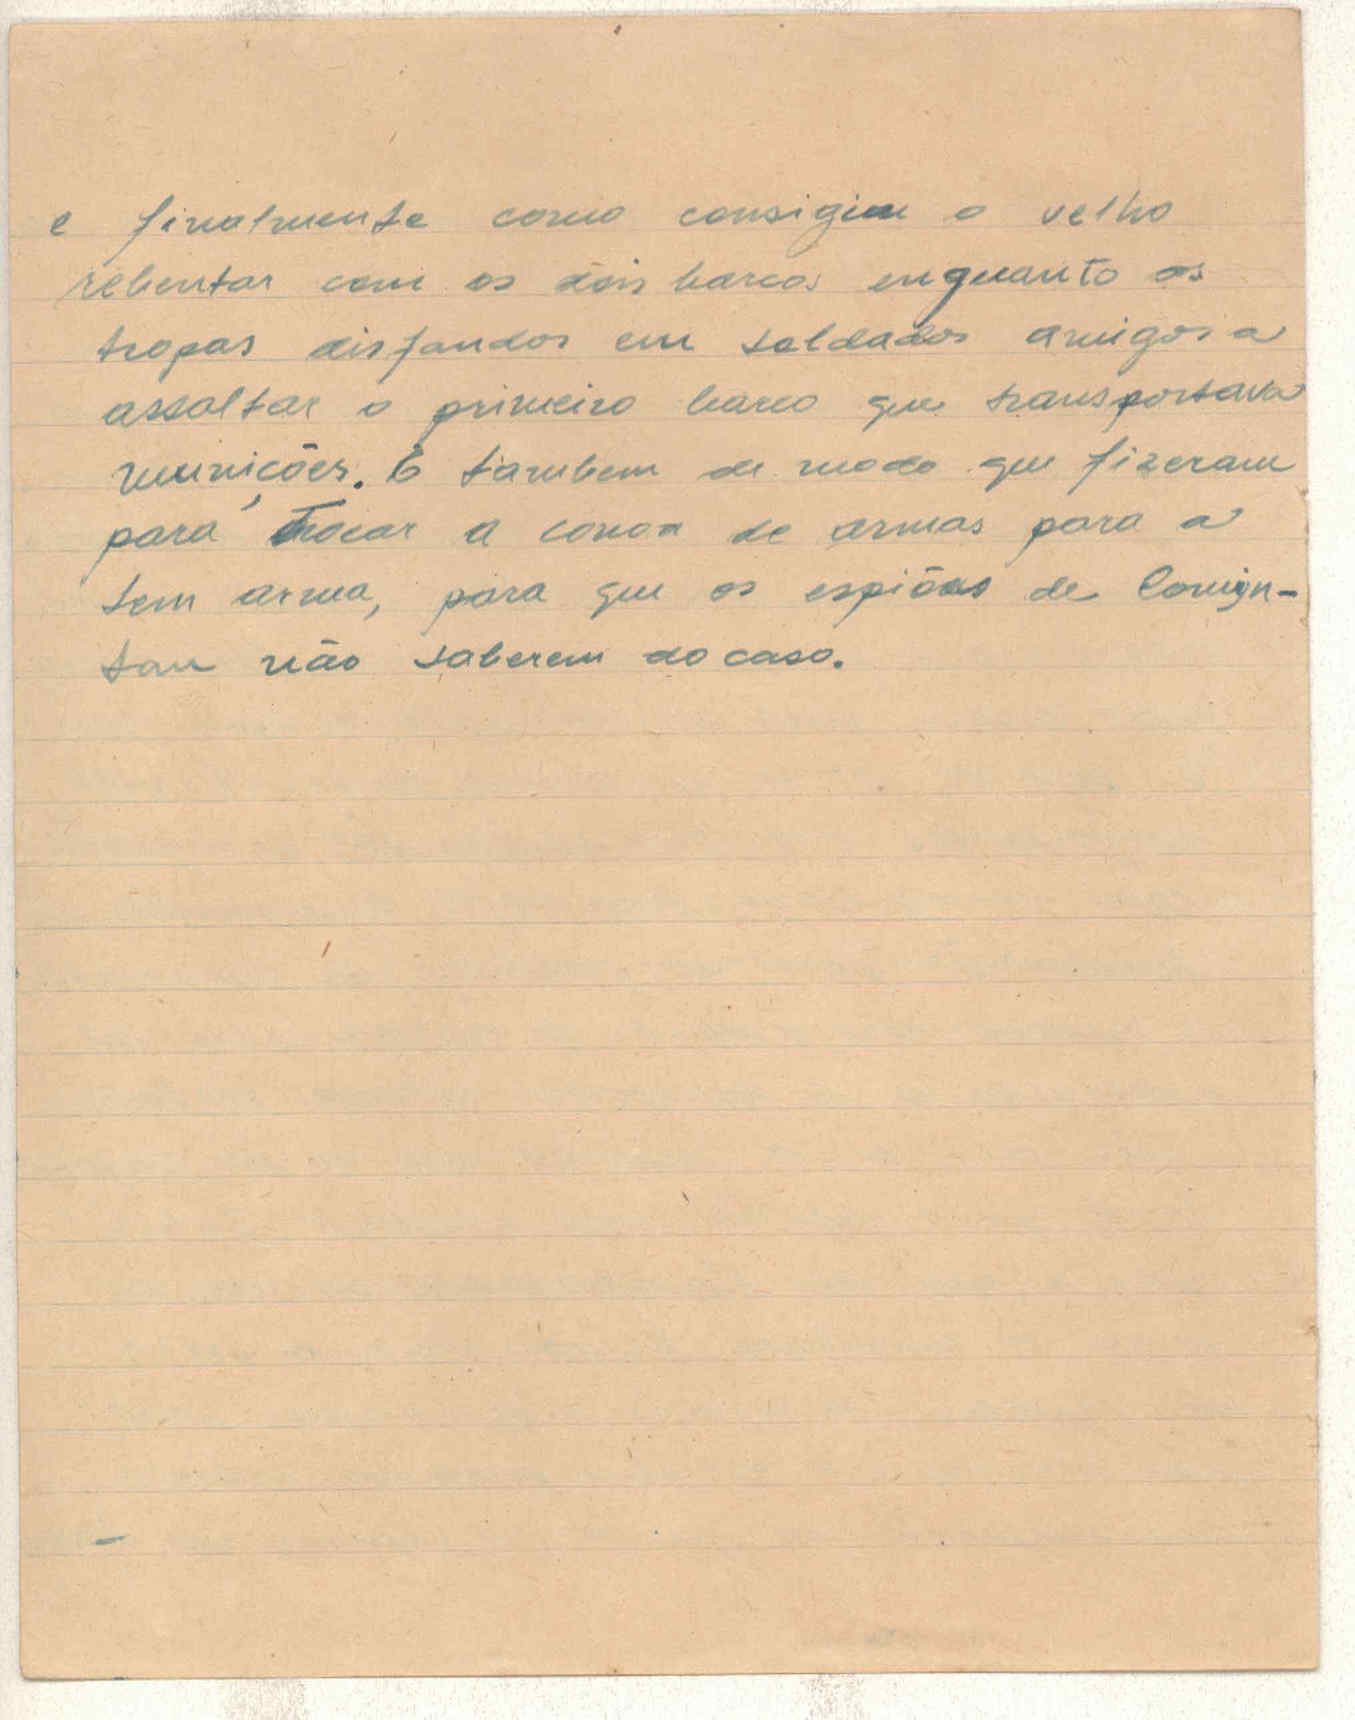 e finalmente como consigiu o velho
rebentar com os dois barcos enquanto os
tropas disfandos em soldados amigos a
assaltar o primeiro barco que transportava
munições. E tambem de modo que fizeram
para trocar a conoa de armas para a
sem arma, para que os espiões de
não saberem do caso.